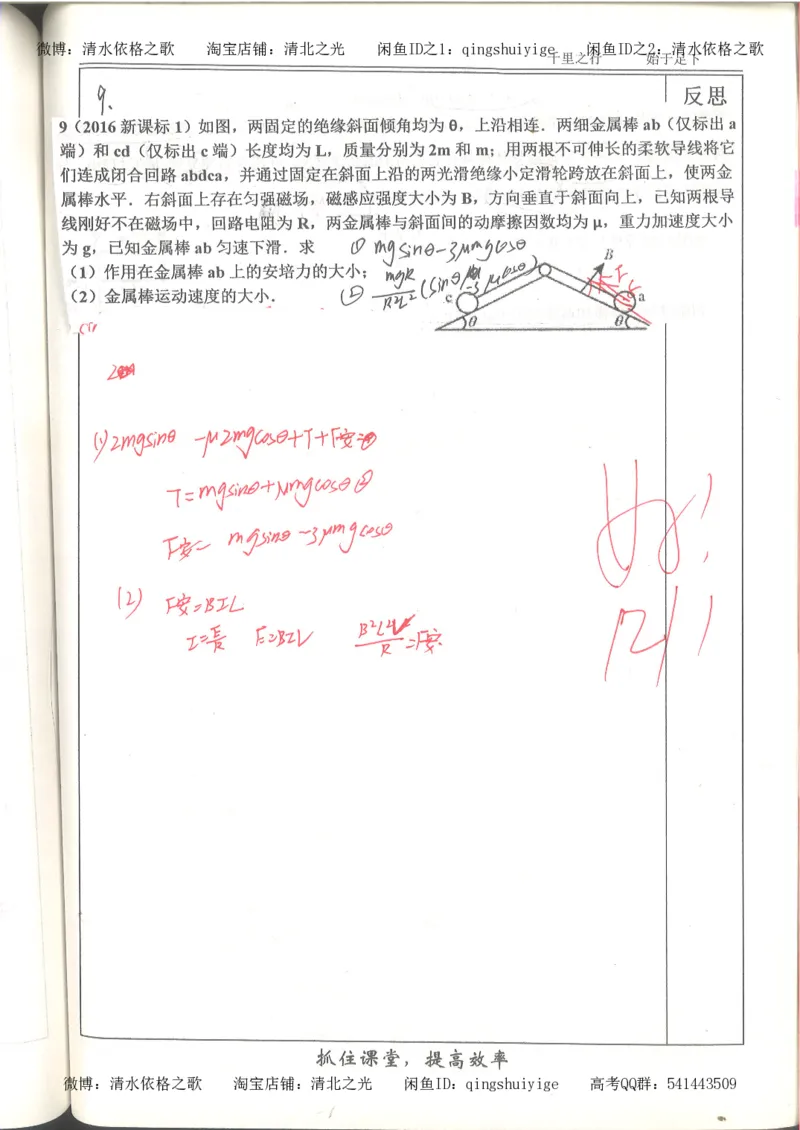 微博：清水依格之歌 淘宝店铺：清北之光 闲鱼ID之1：qingshuiyige 闲鱼ID之2：清水依格之歌
千里之行 始于足下
9、
反思
9（2016 新课标 1）如图，两固定的绝缘斜面倾角均为 θ，上沿相连．两细金属棒 ab（仅标出 a
端）和 cd（仅标出 c 端）长度均为 L，质量分别为 2m 和 m；用两根不可伸长的柔软导线将它
们连成闭合回路 abdca，并通过固定在斜面上沿的两光滑绝缘小定滑轮跨放在斜面上，使两金
属棒水平．右斜面上存在匀强磁场，磁感应强度大小为 B，方向垂直于斜面向上，已知两根导
线刚好不在磁场中，回路电阻为 R，两金属棒与斜面间的动摩擦因数均为 μ，重力加速度大小
为 g，已知金属棒 ab 匀速下滑．求 ① mgsinθ-3μmgcosθ
（1）作用在金属棒 ab 上的安培力的大小；
（2）金属棒运动速度的大小． ② mgR/B²L² (sinθ-3μcosθ)
B
c
a
θ θ
(1) 2mgsinθ -μ2mgcosθ+T+F安=0
T=mgsinθ+μmgcosθ
F安= mgsinθ-3μmgcosθ
(2) F安=BIL
I=E/R E=BLV B²L²V/R=F安
抓住课堂，提高效率
微博：清水依格之歌 淘宝店铺：清北之光 闲鱼ID：qingshuiyige 高考QQ群：541443509